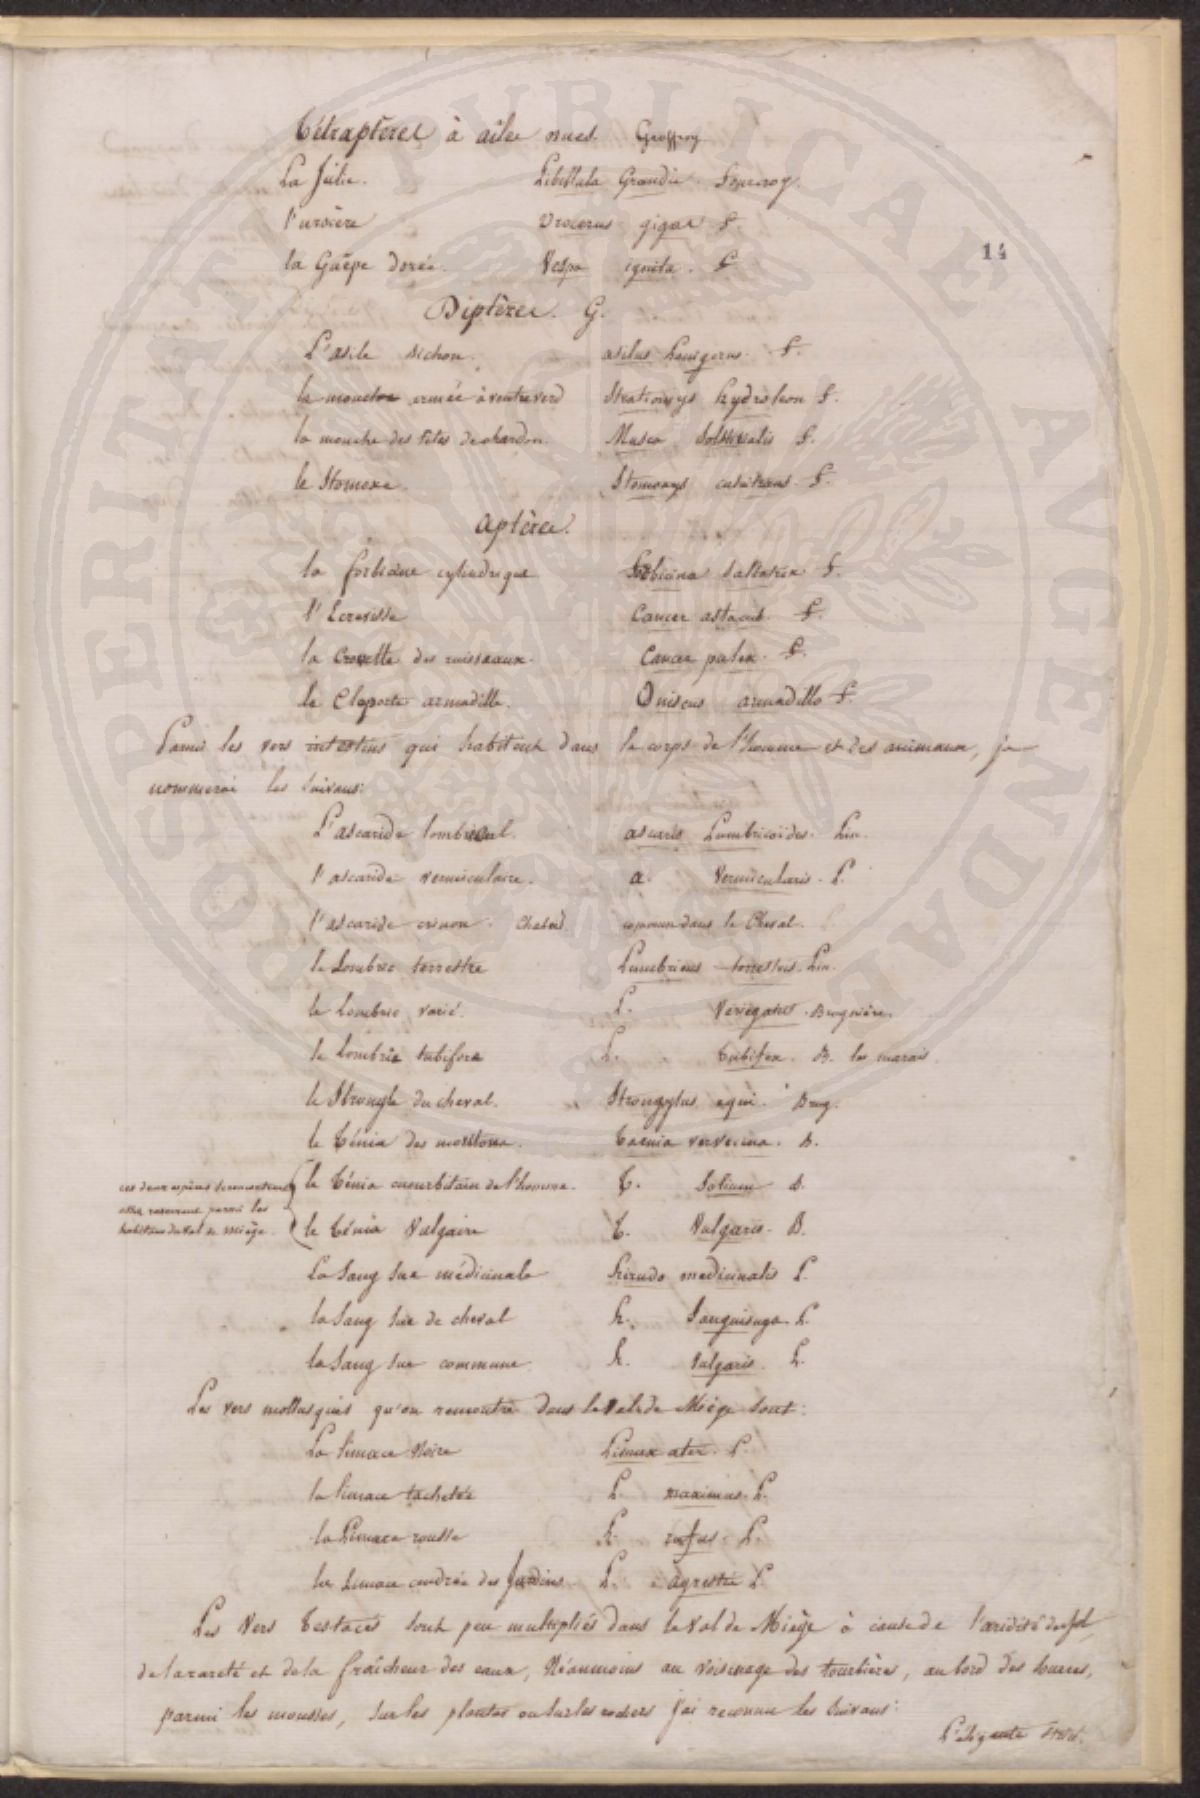 Tétraptères à ailes nues Geoffroy
La Julie. Libellula Grandis. Fourcroy.
l'urocère Urocerus gigas F.
14
la Guêpe Dorée. Vespa ignita. F.
Diptères. G.
L'asile bichon. asilus F.
la mouche armée à ventre verd Stratiomys hydroleon F.
la mouche des têtes de chardon. Musca Solstitialis F.
le Stomoxe. Stomoxys calcitrans. F.
aptères.
la forbicine cylindrique Forbicina Saltatrix F.
l'Ecrevisse Cancer astacus. F.
la Crevette des ruisseaux. Cancer pulex. F.
le Cloporte armadille. Oniscus armadillo F.
Parmi les vers intestins qui habitent dans le corps de l'homme et des animaux, je
nommerai les Suivans:
L'ascaride lombrical. ascaris Lumbricoïdes. Lin.
l'ascaride vermiculaire. a. Vermicularis. L.
l'ascaride crinon. Chabert commun dans le Cheval.
le Lombric terrestre Lumbricus terrestris. Lin.
le Lombric varié. L. Variegatus. Bruguière.
le Lombric tubifore L. Tubifex. B. les marais.
le Strongle du cheval. Strongylus equi. Brug.
le Ténia des moutons. Taenia vervecina. B.
ces deux espèces se rencontrent le Ténia cucurbitain de l'homme. T. Solium B.
assez rarement parmi les
habitans du Val de Miège. le Ténia Vulgaire T. Vulgaris. B.
La Sang Sue médicinale hirudo medicinalis L.
la Sang Sue de cheval h. Sanguisuga. L.
la Sang Sue commune. h. Vulgaris. L.
Les vers mollusques qu'on rencontre dans le Val de Miège Sont:
La limace Noire Limax ater. L.
la limace tachetée L. maximus. L.
la Limace rousse L. rufus. L.
la Limace cendrée des Jardins. L. agrestis L.
Les Vers Testacés Sont peu multipliés dans le Val de Miège à cause de l'aridité du Sol,
de la rareté et de la fraîcheur des eaux, Néanmoins au voisinage des tourbières, au bord des mares,
parmi les mousses, Sur les plantes ou Sur les rochers j'ai reconnu les Suivans:
L'élégante Striée.